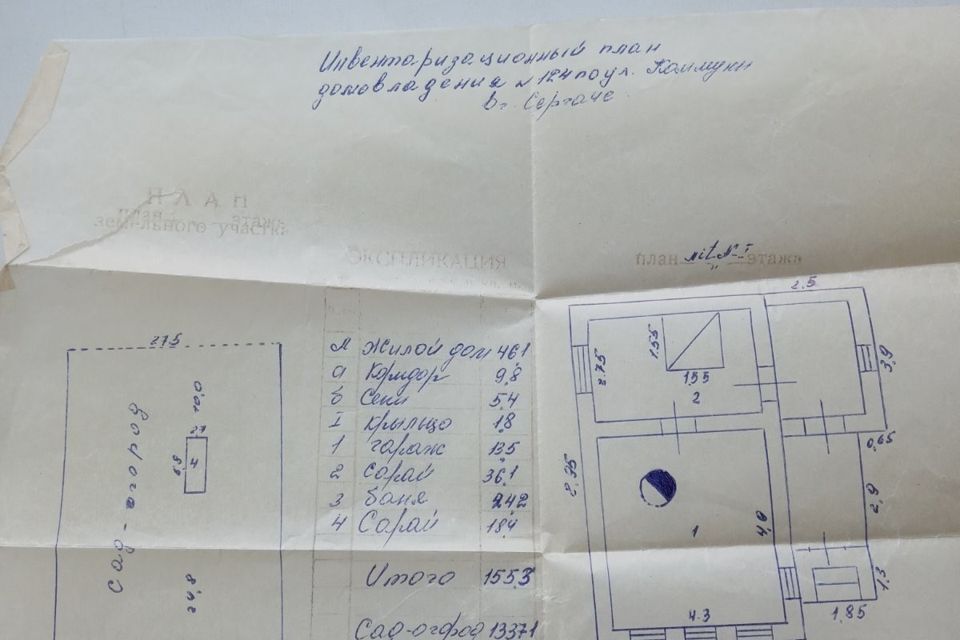 Инвентаризационный план
домовладения № 124 по ул. Коммуны
в г. Сергаче
ПЛАН
план этажа
земельного участка
ЭКСПЛИКАЦИЯ
план этажа
27.5
огород
2.7
6.8
4
Сад-огород
84.2
А жилой дом 46.1
а Коридор 9.8
б Сени 5.4
I крыльцо 1.8
1 гараж 13.5
2 сарай 36.1
3 баня 24.2
4 Сарай 18.4
Итого 155.3
Сад-огород 1337.1
2.5
1.55
2.75
1.55
2
3.9
0.65
8.35
2.9
1
4.9
1.3
4.3
1.85